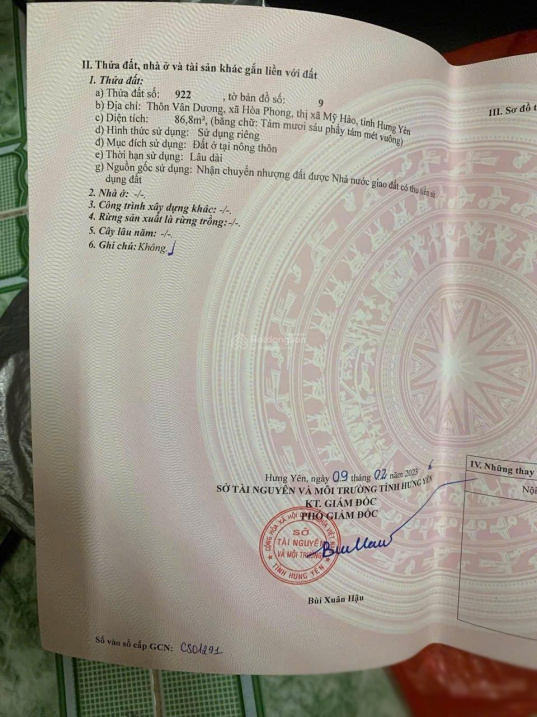 II. Thửa đất, nhà ở và tài sản khác gắn liền với đất
1. Thửa đất:
a) Thửa đất số: 922 , tờ bản đồ số: 9
b) Địa chỉ: Thôn Vân Dương, xã Hòa Phong, thị xã Mỹ Hào, tỉnh Hưng Yên
c) Diện tích: 86,8m², (bằng chữ: Tám mươi sáu phẩy tám mét vuông)
d) Hình thức sử dụng: Sử dụng riêng
đ) Mục đích sử dụng: Đất ở tại nông thôn
e) Thời hạn sử dụng: Lâu dài
g) Nguồn gốc sử dụng: Nhận chuyển nhượng đất được Nhà nước giao đất có thu tiền sử
dụng đất
2. Nhà ở: -/-.
3. Công trình xây dựng khác: -/-.
4. Rừng sản xuất là rừng trồng: -/-.
5. Cây lâu năm: -/-.
6. Ghi chú: Không.
III. Sơ đồ t
Batdongsan
Hưng Yên, ngày 09 tháng 02 năm 2023
SỞ TÀI NGUYÊN VÀ MÔI TRƯỜNG TỈNH HƯNG YÊN
KT. GIÁM ĐỐC
PHÓ GIÁM ĐỐC
SỞ
TÀI NGUYÊN
VÀ MÔI TRƯỜNG
TỈNH HƯNG YÊN
Bùi Xuân Hậu
IV. Những thay
Nội
Số vào sổ cấp GCN: CS01291